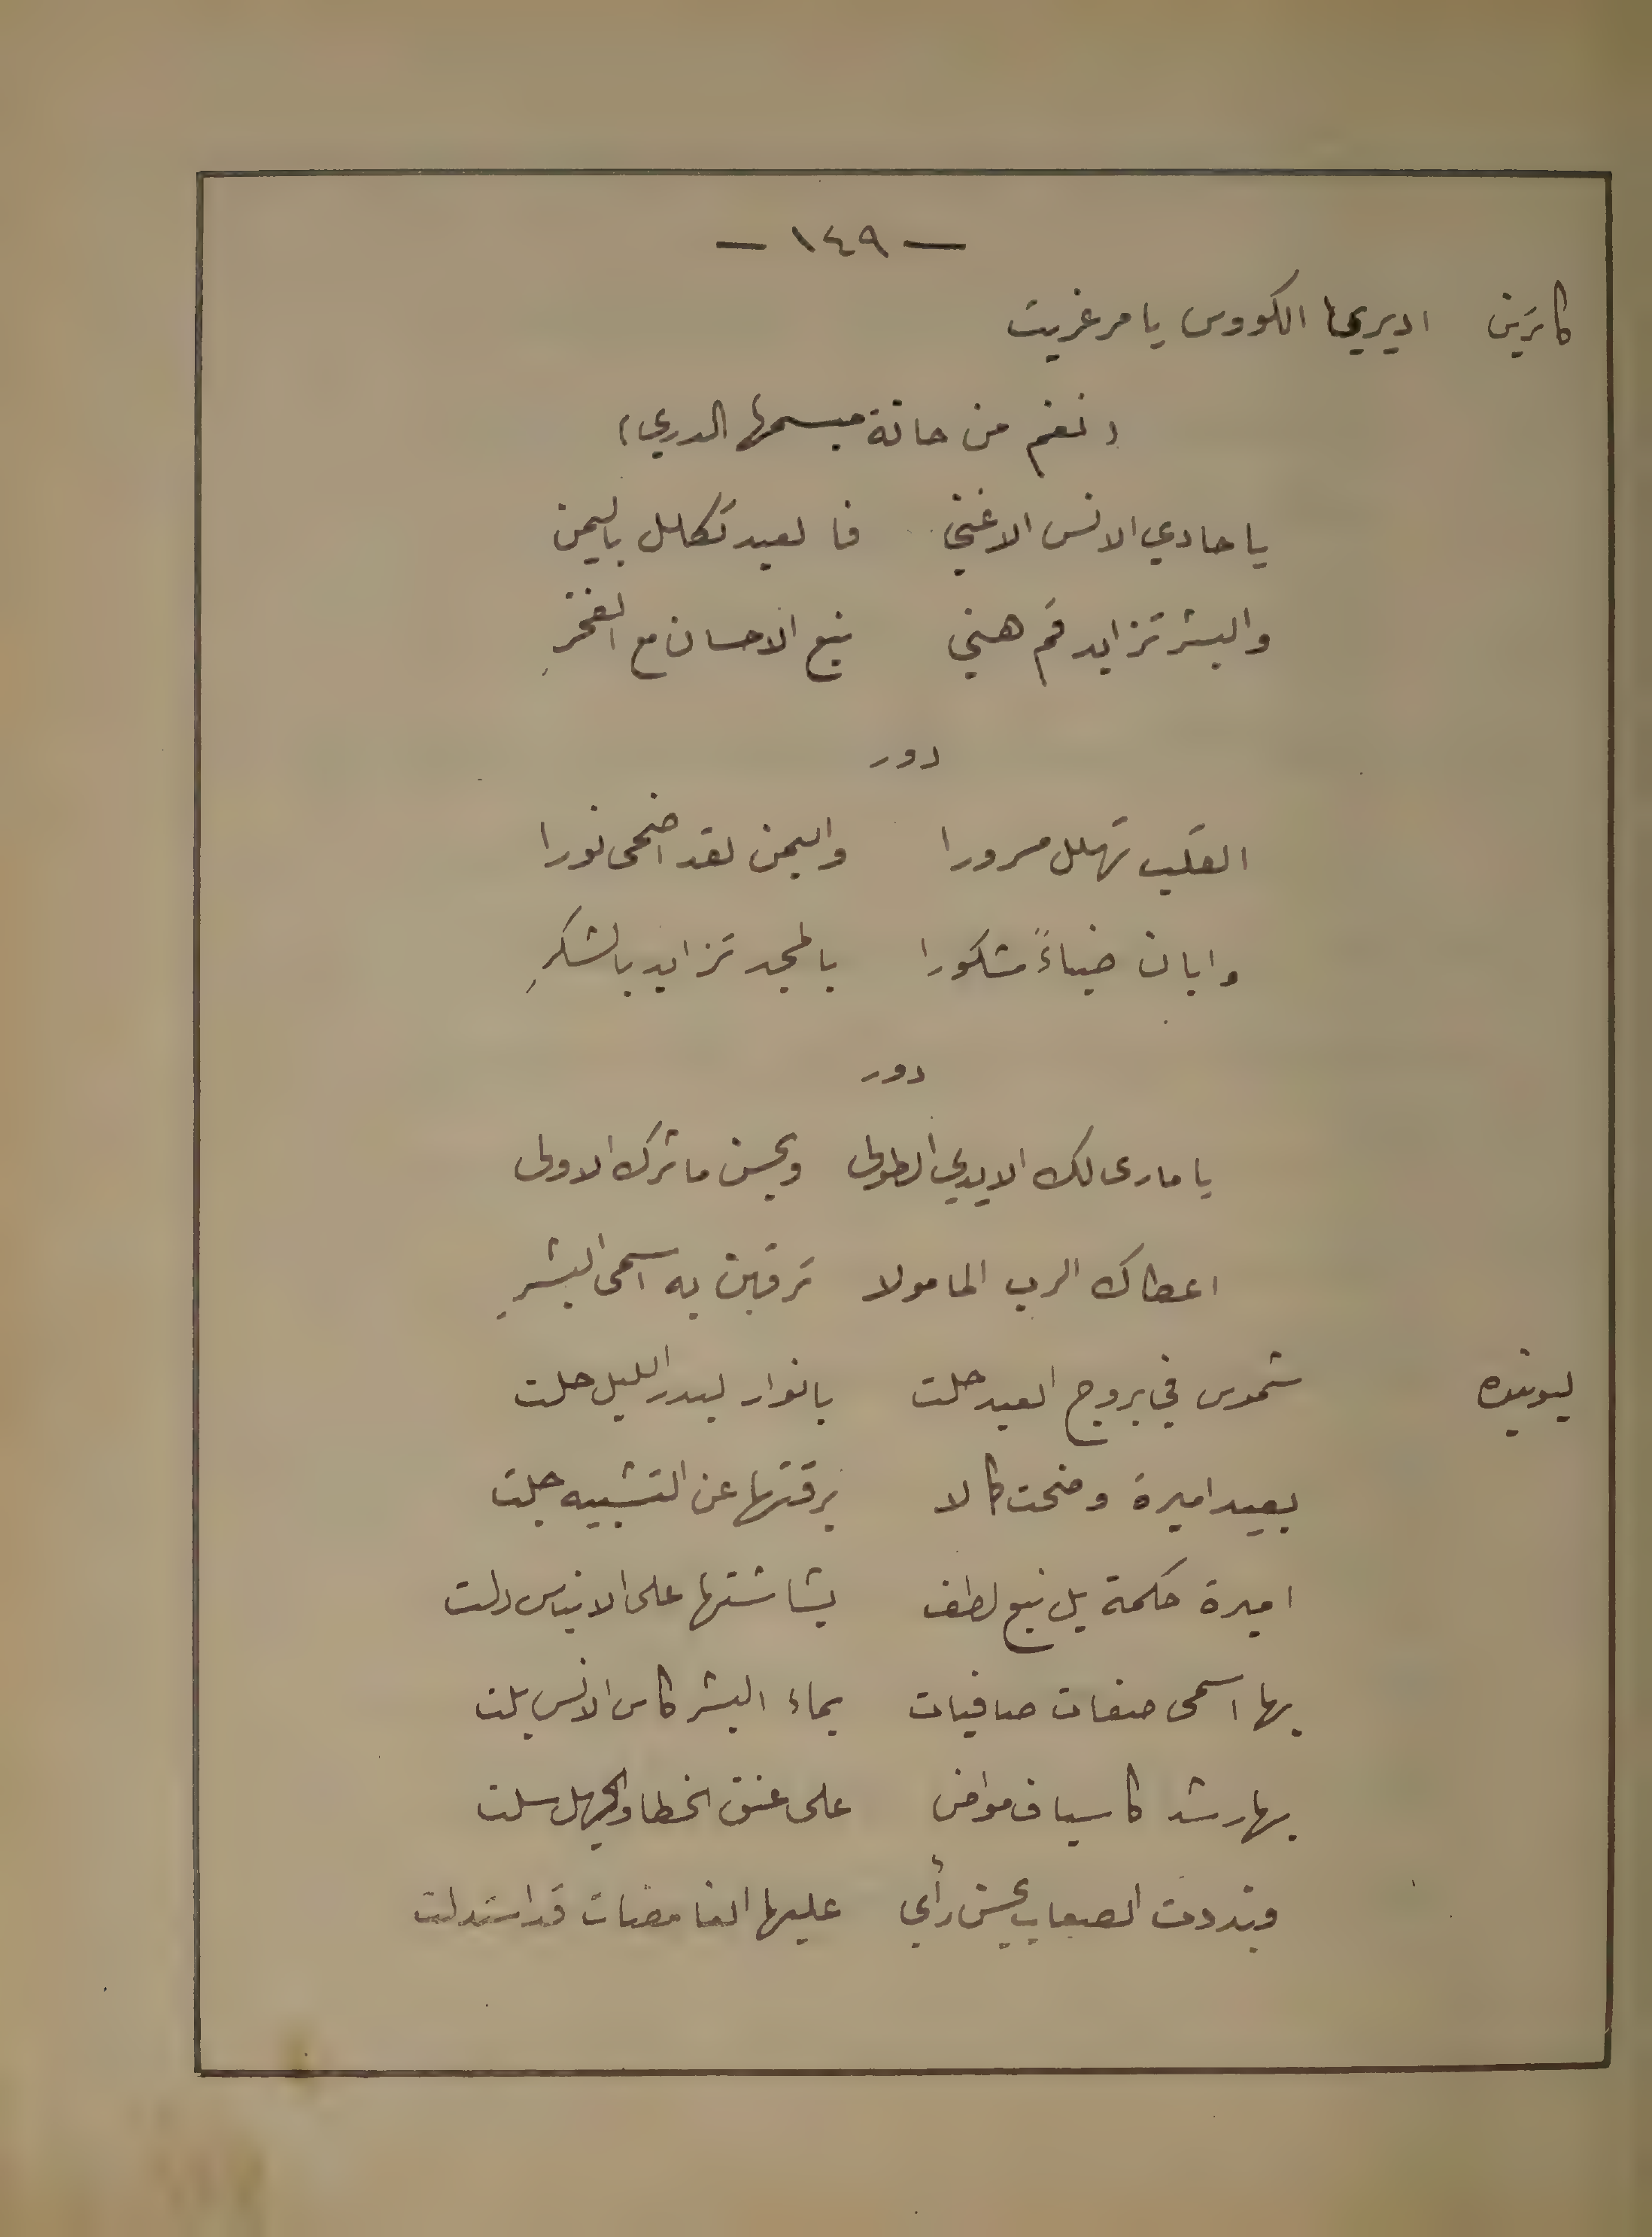 — ١٤٩ —
كاترين اديري الكووس يا مرغريت
( نغم من حانة مبسمها الدري )
يا حادي الانس الا غني فالعيد تكلل باليمن
والبشر تزايد قم هني نبع الاحسان مع الفخرِ
دور
القلب تهلل مسرورا واليمن لقد اضحى نورا
وابان ضياءً مشكورا بالمجد تزايد بالشكرِ
دور
يا مارى لك الايدي الطولى وبحسن ماثرك الاولى
اعطاك الرب المامولا ترقين به اسمى البشرِ
ليونيده شموس في بروج العيد حلت بانوار لبدر الليل حلت
بعيد اميرة وضحت كمالا برقتها عن التشبيه جلت
اميرة حكمة بل نبع لطف بشاشتها على الايناس دلت
بها اسمى صفات صافيات بماء البشر كاس الانس بلت
بها رشد كاسياف مواض على عنق الخطا والجهل سلت
وبددت الصعاب بحسن رأي عليها الغامضات قد استدلت